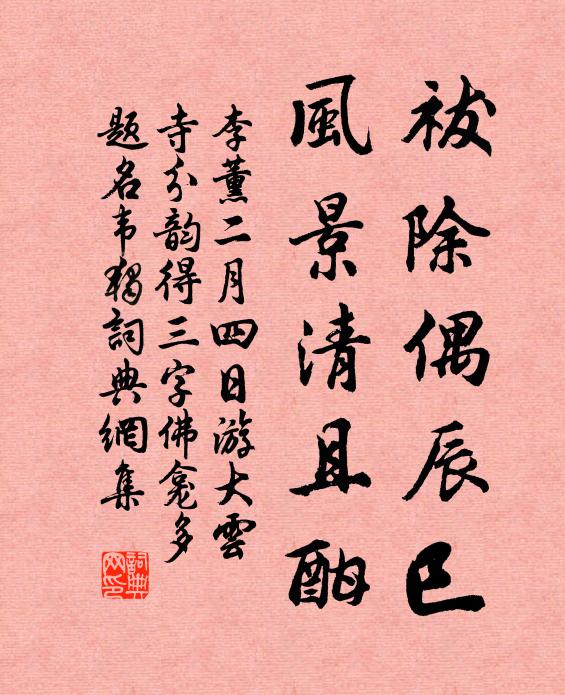 祓除偶辰巳
風景清且酣
李薰二月四日游大雲
寺分韵得三字佛龛多
题名韦獨詞典網集
詞典网印